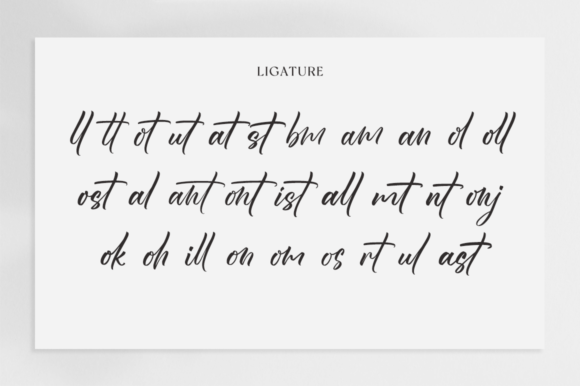 LIGATURE
ll tt ot ut at st bm am an ol oll
ost al ant ont ist all mt nt onj
ok oh ill on om os rt ul ast